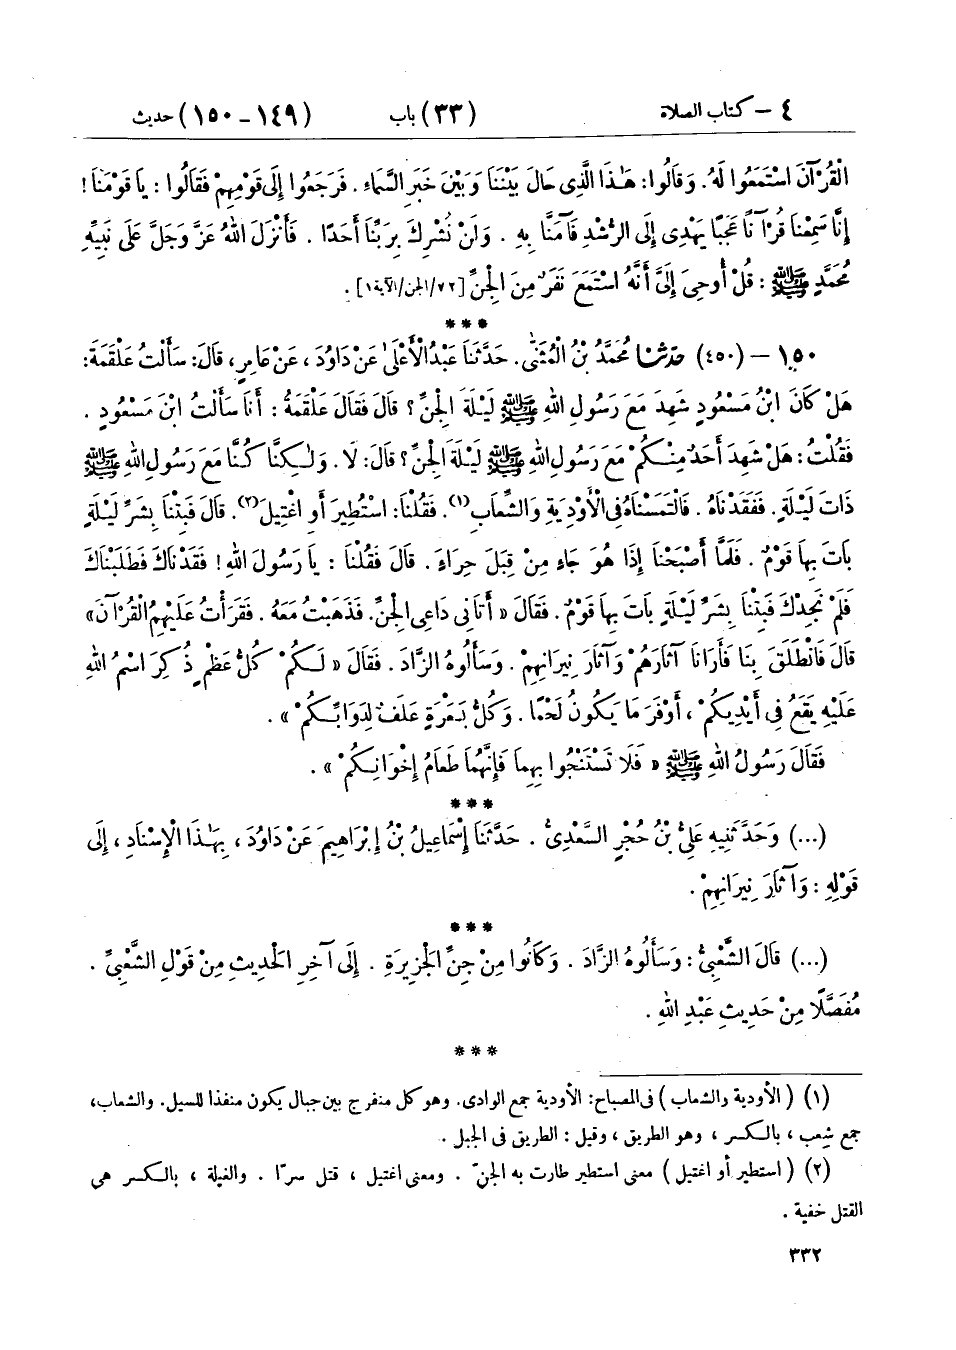 ٤ – كتاب الصلاة (٣٣) باب (١٤٩ – ١٥٠) حديث
الْقُرْآنَ اسْتَمَعُوا لَهُ. وَقَالُوا: هَٰذَا الَّذِي حَالَ بَيْنَنَا وَبَيْنَ خَبَرِ السَّمَاءِ. فَرَجَعُوا إِلَى قَوْمِهِمْ فَقَالُوا: يَا قَوْمَنَا!
إِنَّا سَمِعْنَا قُرْآنًا عَجَبًا يَهْدِي إِلَى الرُّشْدِ فَآمَنَّا بِهِ. وَلَنْ نُشْرِكَ بِرَبِّنَا أَحَدًا. فَأَنْزَلَ اللهُ عَزَّ وَجَلَّ عَلَى نَبِيِّهِ
مُحَمَّدٍ ﷺ: قُلْ أُوحِيَ إِلَيَّ أَنَّهُ اسْتَمَعَ نَفَرٌ مِنَ الْجِنِّ [٧٢/الجن/الآية١].
***
١٥٠ – (٤٥٠) حَدَّثَنَا مُحَمَّدُ بْنُ الْمُثَنَّى. حَدَّثَنَا عَبْدُ الْأَعْلَى عَنْ دَاوُدَ، عَنْ عَامِرٍ، قَالَ: سَأَلْتُ عَلْقَمَةَ:
هَلْ كَانَ ابْنُ مَسْعُودٍ شَهِدَ مَعَ رَسُولِ اللهِ ﷺ لَيْلَةَ الْجِنِّ؟ قَالَ فَقَالَ عَلْقَمَةُ: أَنَا سَأَلْتُ ابْنَ مَسْعُودٍ.
فَقُلْتُ: هَلْ شَهِدَ أَحَدٌ مِنْكُمْ مَعَ رَسُولِ اللهِ ﷺ لَيْلَةَ الْجِنِّ؟ قَالَ: لَا. وَلَٰكِنَّا كُنَّا مَعَ رَسُولِ اللهِ ﷺ
ذَاتَ لَيْلَةٍ. فَفَقَدْنَاهُ. فَالْتَمَسْنَاهُ فِي الْأَوْدِيَةِ وَالشِّعَابِ(١). فَقُلْنَا: اسْتُطِيرَ أَوِ اغْتِيلَ(٢). قَالَ فَبِتْنَا بِشَرِّ لَيْلَةٍ
بَاتَ بِهَا قَوْمٌ. فَلَمَّا أَصْبَحْنَا إِذَا هُوَ جَاءٍ مِنْ قِبَلَ حِرَاءَ. قَالَ فَقُلْنَا: يَا رَسُولَ اللهِ! فَقَدْنَاكَ فَطَلَبْنَاكَ
فَلَمْ نَجِدْكَ فَبِتْنَا بِشَرِّ لَيْلَةٍ بَاتَ بِهَا قَوْمٌ. فَقَالَ «أَتَانِي دَاعِي الْجِنِّ. فَذَهَبْتُ مَعَهُ. فَقَرَأْتُ عَلَيْهِمُ الْقُرْآنَ»
قَالَ فَانْطَلَقَ بِنَا فَأَرَانَا آثَارَهُمْ وَآثَارَ نِيرَانِهِمْ. وَسَأَلُوهُ الزَّادَ. فَقَالَ «لَكُمْ كُلُّ عَظْمٍ ذُكِرَ اسْمُ اللهِ
عَلَيْهِ يَقَعُ فِي أَيْدِيكُمْ، أَوْفَرَ مَا يَكُونُ لَحْمًا. وَكُلُّ بَعْرَةٍ عَلَفٌ لِدَوَابِّكُمْ».
فَقَالَ رَسُولُ اللهِ ﷺ «فَلَا تَسْتَنْجُوا بِهِمَا فَإِنَّهُمَا طَعَامُ إِخْوَانِكُمْ».
***
(...) وَحَدَّثَنِيهِ عَلِيُّ بْنُ حُجْرٍ السَّعْدِيُّ. حَدَّثَنَا إِسْمَاعِيلُ بْنُ إِبْرَاهِيمَ عَنْ دَاوُدَ، بِهَٰذَا الْإِسْنَادِ، إِلَى
قَوْلِهِ: وَآثَارَ نِيرَانِهِمْ.
***
(...) قَالَ الشَّعْبِيُّ: وَسَأَلُوهُ الزَّادَ. وَكَانُوا مِنْ جِنِّ الْجَزِيرَةِ. إِلَى آخِرِ الْحَدِيثِ مِنْ قَوْلِ الشَّعْبِيِّ.
مُفَصَّلًا مِنْ حَدِيثِ عَبْدِ اللهِ.
***
(١) (الأودية والشعاب) فى المصباح: الأودية جمع الوادى. وهو كل منفرج بين جبال يكون منفذا للسيل. والشعاب،
جمع شِعب، بالكسر، وهو الطريق، وقيل: الطريق فى الجبل.
(٢) (استطير أو اغتيل) معنى استطير طارت به الجنّ. ومعنى اغتيل، قتل سرّا. والغيلة، بالكسر هى
القتل خفية.
٣٣٢